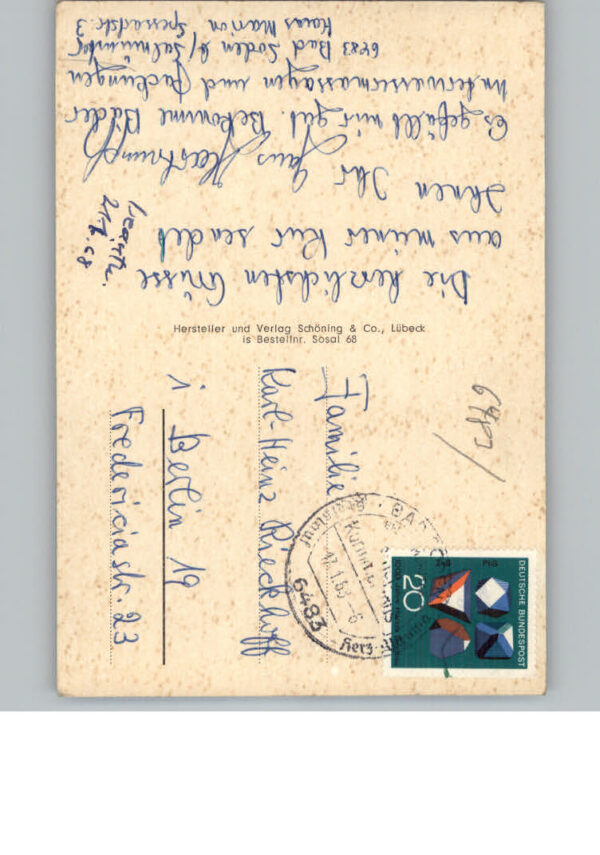 Die herzlichsten Grüsse
aus meiner Kur sendet
Ihnen Ihr
Es gefällt mir gut. Bekomme Bäder
Unterwassermassagen und Packungen
6483 Bad Soden b/ Salmünster
Haus Marion Spessartstr. 3
beantw.
Hersteller und Verlag Schöning & Co., Lübeck
is Bestellnr. Sosal 68
Familie
Karl-Heinz Rieckhoff
1 Berlin 19
Fredericiastr. 23
6483
DEUTSCHE BUNDESPOST
20
6483
Herz-